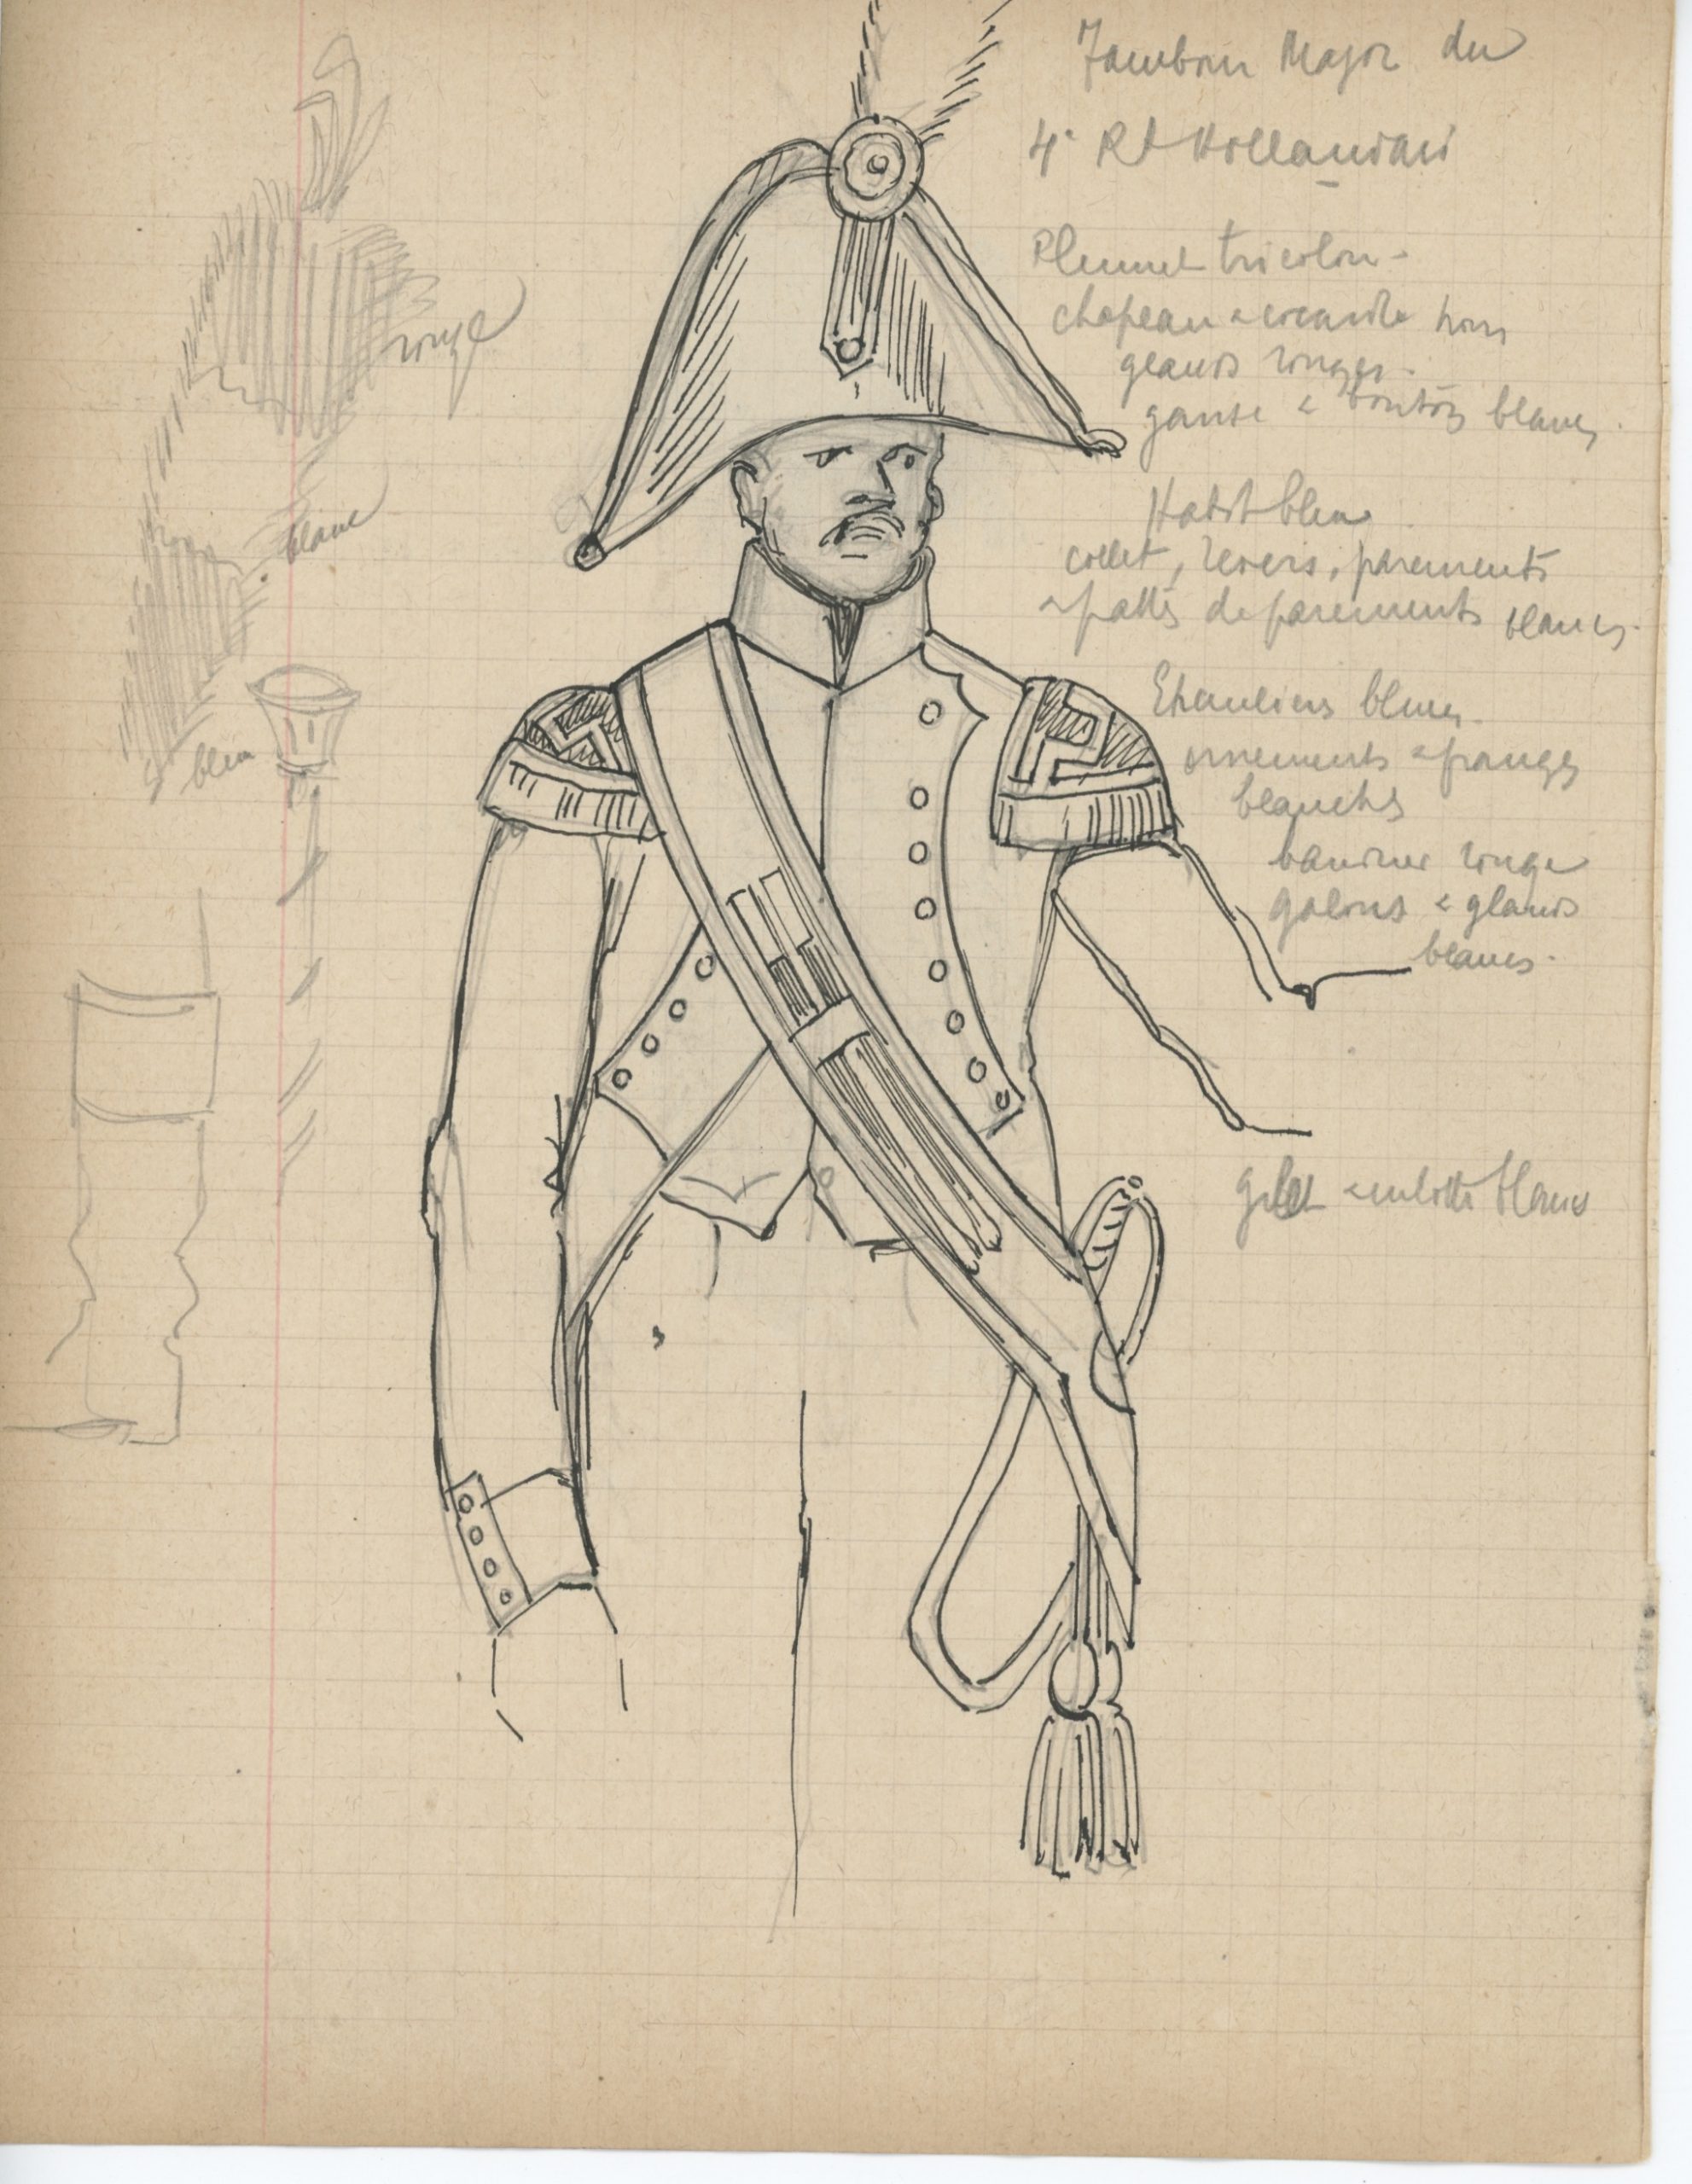 Tambour Major du
4e Rt Hollandais
Plumet tricolore
chapeau & cocarde noirs
glands rouges.
ganse & boutons blancs.
Habit bleu
collet, revers, parements
& pattes de parements blancs.
bleues.
ornements & franges
blanches
baudrier rouge
galons & glands
blancs.
gilet & culotte blancs
rouge
blanc
bleu